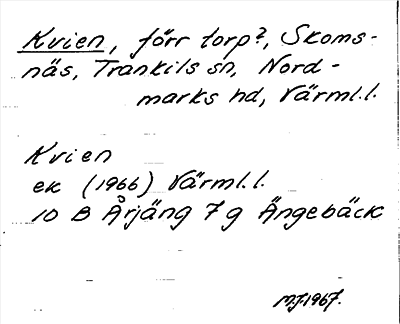 Kvien, förr torp?, Skoms-
näs, Trankils sn, Nord-
marks hd, Värml.l.
Kvien
ek (1966) Värml.l.
10 B Årjäng 7 g Ängebäck
M.J.1967.